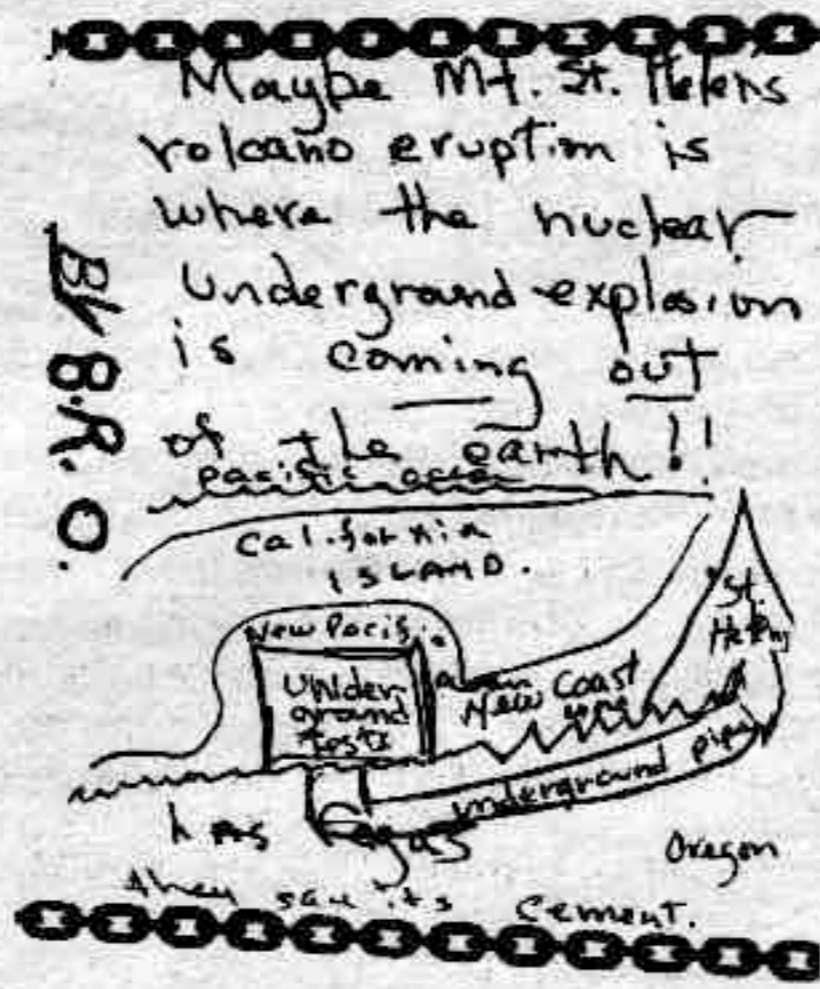 Maybe Mt. St. Helens
volcano eruption is
where the nuclear
underground explosion
is coming out
of the earth!!
BY B.R.O.
pacific ocean
California
ISLAND.
New Pacific
ocean
Under-
ground
tests
New Coast
St.
Helens
underground pipe
Las Vegas
Oregon
they say its cement.